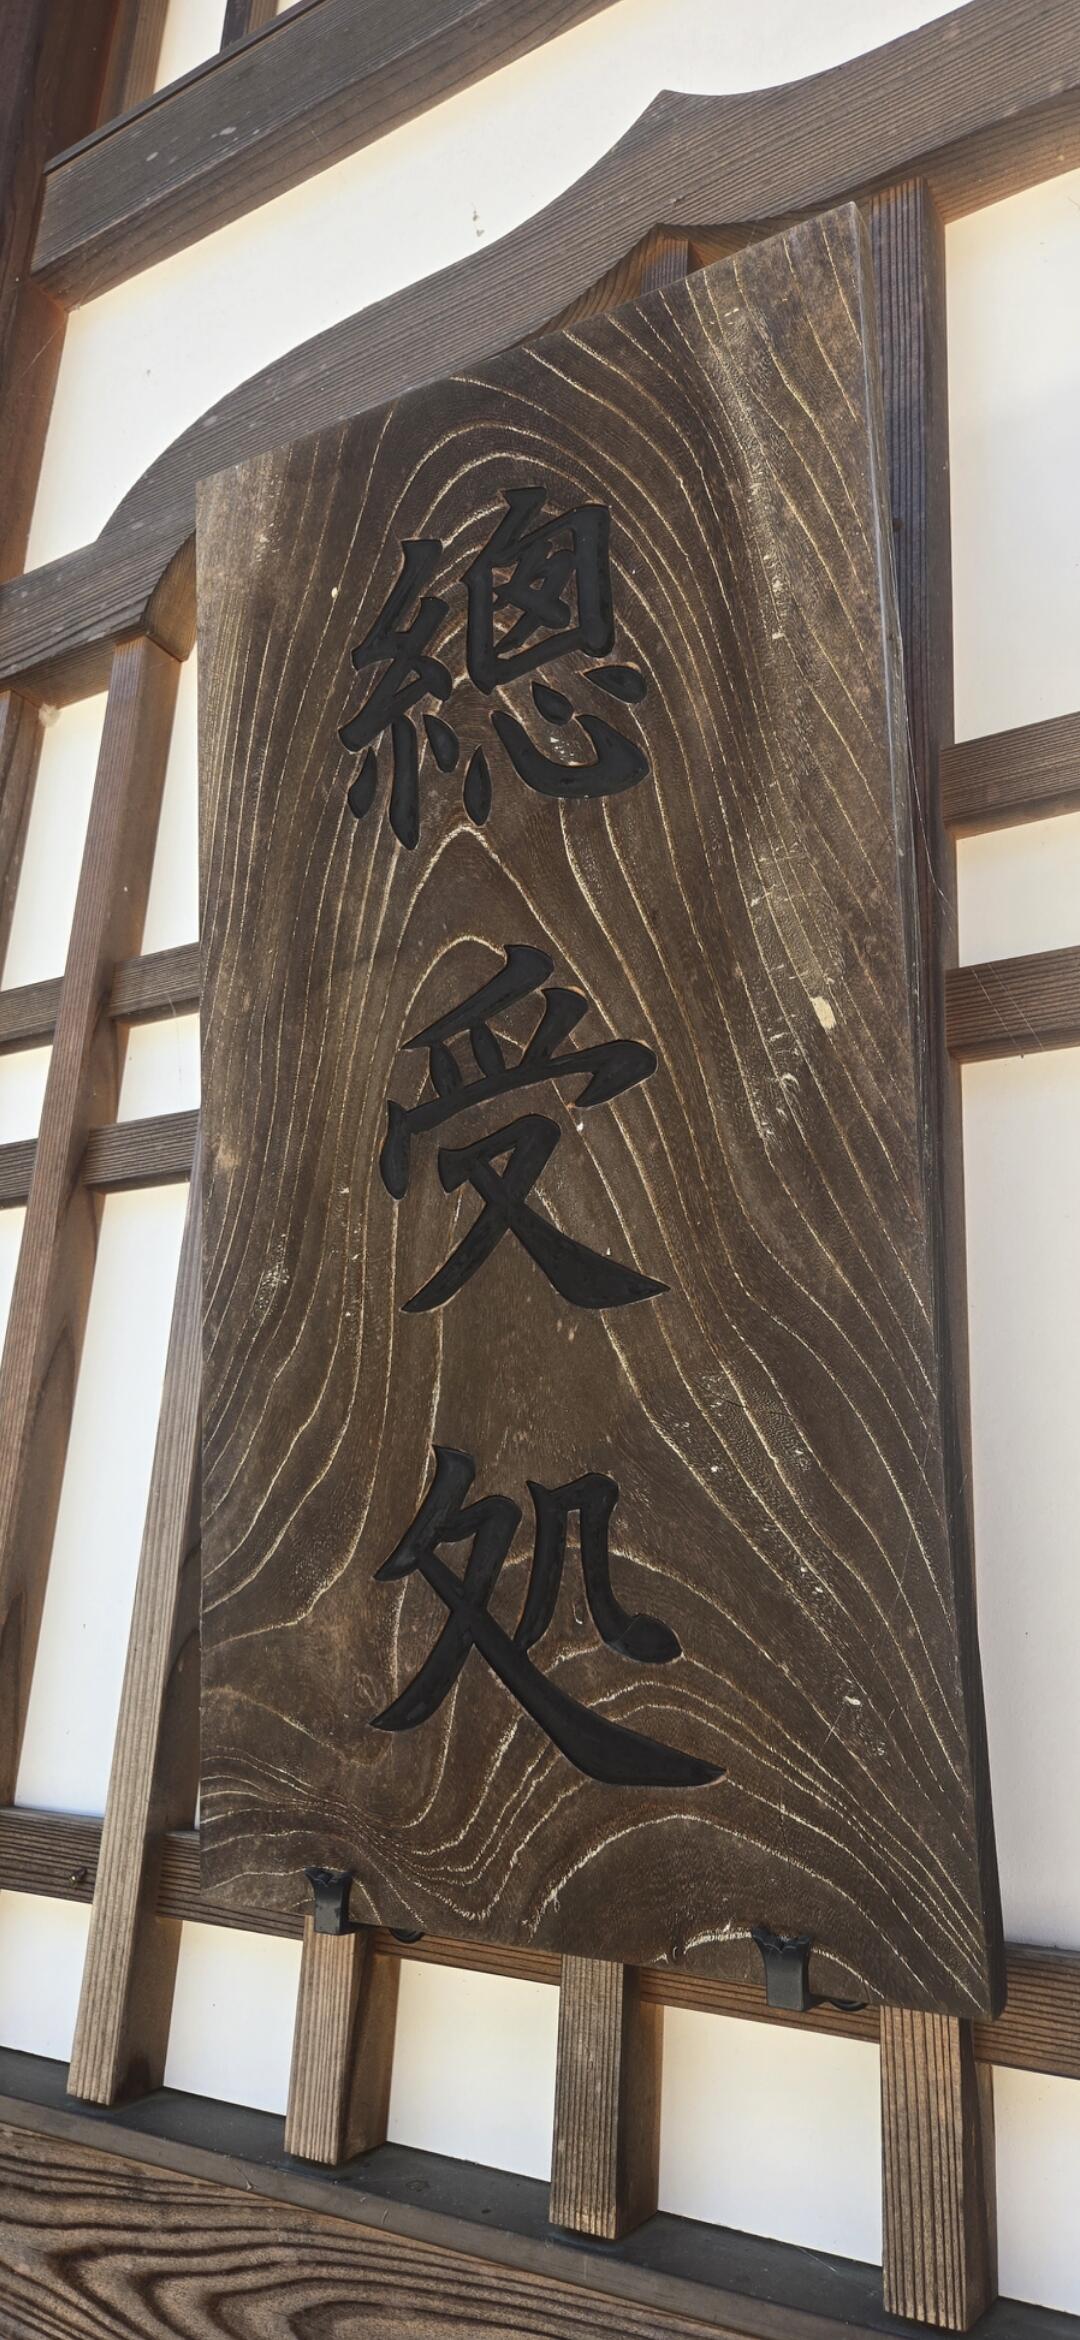 總受処